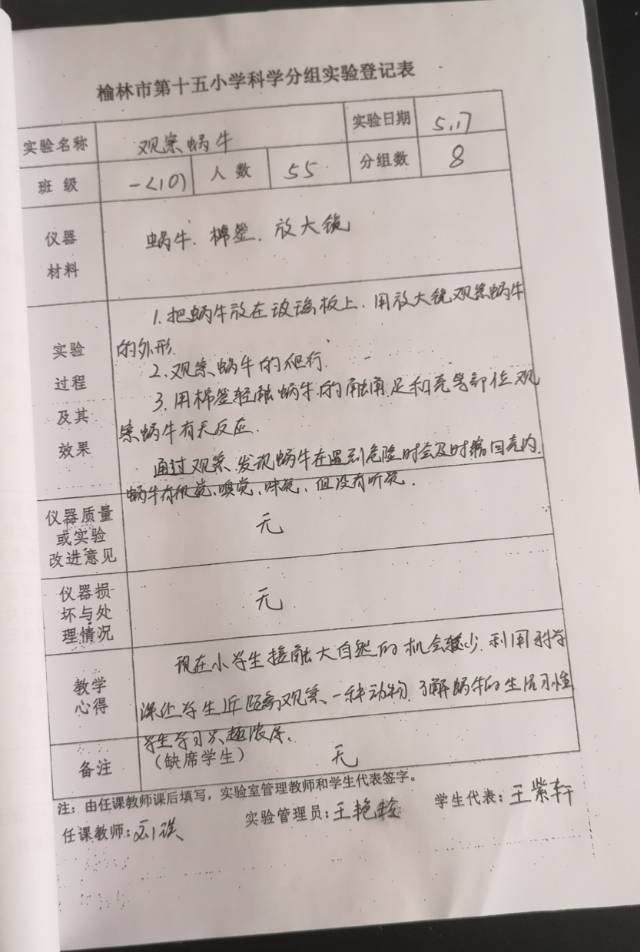 榆林市第十五小学科学分组实验登记表
实验名称 观察蜗牛 实验日期 5.17
班级 一<10) 人数 55 分组数 8
仪器材料 蜗牛、棉签、放大镜
实验过程及其效果
1. 把蜗牛放在玻璃板上,用放大镜观察蜗牛
的外形.
2. 观察蜗牛的爬行.
3. 用棉签轻触蜗牛的触角、足和壳等部位观
察蜗牛有无反应.
通过观察、发现蜗牛在遇到危险时会及时缩回壳内.
蜗牛有视觉、嗅觉、味觉,但没有听觉.
仪器质量或实验改进意见 无
仪器损坏与处理情况 无
教学心得
现在小学生接触大自然的机会较少,利用科学
课让学生近距离观察一种动物,了解蜗牛的生活习性
学生学习兴趣浓厚.
备注 (缺席学生) 无
注:由任课教师课后填写,实验室管理教师和学生代表签字。
任课教师: 实验管理员:王艳 学生代表:王紫轩